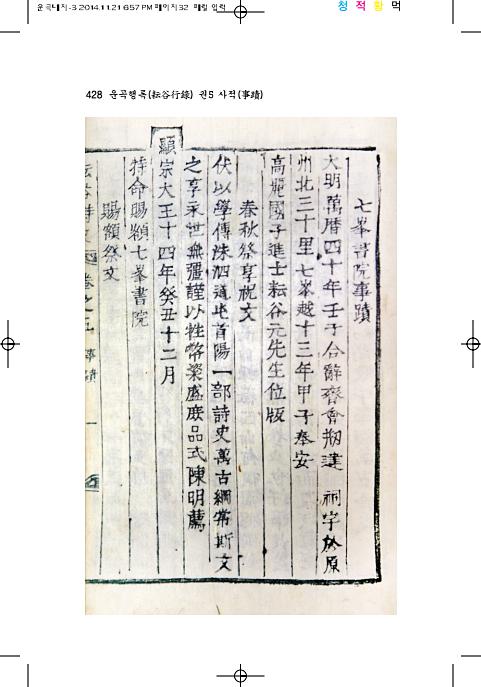 운곡내지-3 2014.11.21 6:57 PM 페이지32
청 적 황 먹
428 운곡행록(耘谷行錄) 권5 사적(事蹟)
七峯書院事蹟
大明萬曆四十年壬子合辭齊會刱建 祠宇於原
州北三十里七峯越十三年甲子奉安
高麗國子進士耘谷元先生位版
春秋祭享祝文
伏以學傳洙泗道屹首陽一部詩史萬古綱常斯文
之享永世無疆謹以牲幣粢盛庶品式陳明薦
顯宗大王十四年癸丑十二月
特命賜額七峯書院
賜額祭文
耘谷詩史 卷之五 事蹟 一